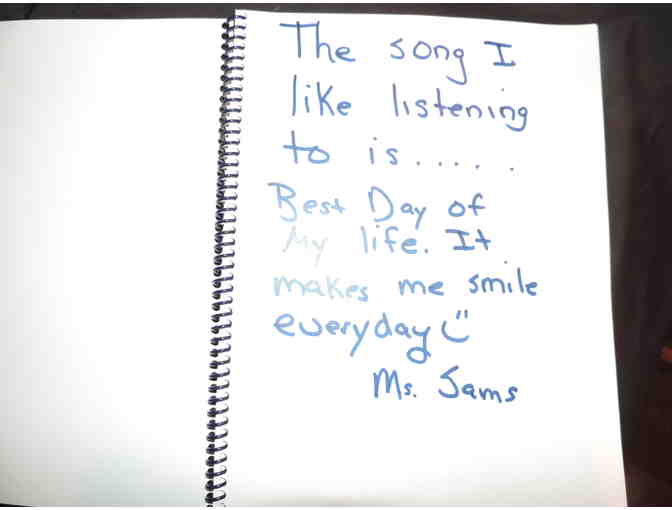 The song I
like listening
to is.....
Best Day of
My life. It
makes me smile
everyday
Ms. Sams